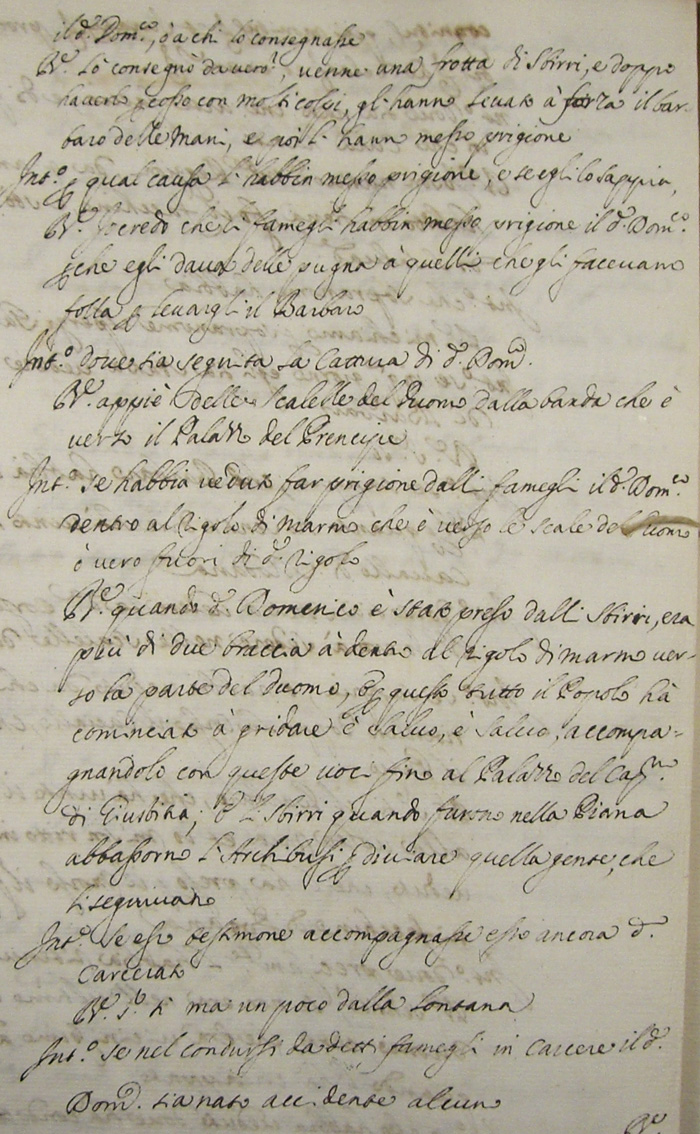 il d.º Dom.co, ò à chi lo consegnasse
R.e lo consegnò da vero, venne una frotta di Sbirri, e doppo
haverlo percosso con molti colpi, gl'hanno levato à forza il bar-
baro delle mani, e poi l'hann messo prigione
Int.º per qual causa l'habbin messo prigione, e se egli lo sappia,
R.e Io credo che li famegli habbin messo prigione il d.º Dom.co
perche egli dava delle pugna à quelli che gli facevano
folla per levargli il Barbaro
Int.º dove sia seguita la Cattura di d.º Dom.co
R.e appiè delle scalelle del Duomo dalla banda che è
verso il Palazzo del Prencipe
Int.º se habbia veduto far prigione dalli famegli il d.º Dom.co
dentro al rigolo di marmo che è verso le scale del Duomo
ò vero fuori di d.º rigolo
R.e quando d.º Domenico è stato preso dalli Sbirri, era
più di due braccia à dentro al rigolo di marmo ver-
so la parte del Duomo, e per questo tutto il Popolo hà
cominciato à gridare è salvo, è salvo, accompa-
gnandolo con queste voci fino al Palazzo del Cap.no
di Giustitia; e l'Sbirri quando furono nella Piana
abbassorno l'Archibusi per diviare quella gente, che
li seguivano
Int.º se esso testimone accompagnasse esso ancora d.º
Carcerato
R.e s.r sì ma un poco dalla lontana
Int.º se nel condursi da detti famegli in Carcere il d.º
Dom.co sia nato accidente alcuno
R.e